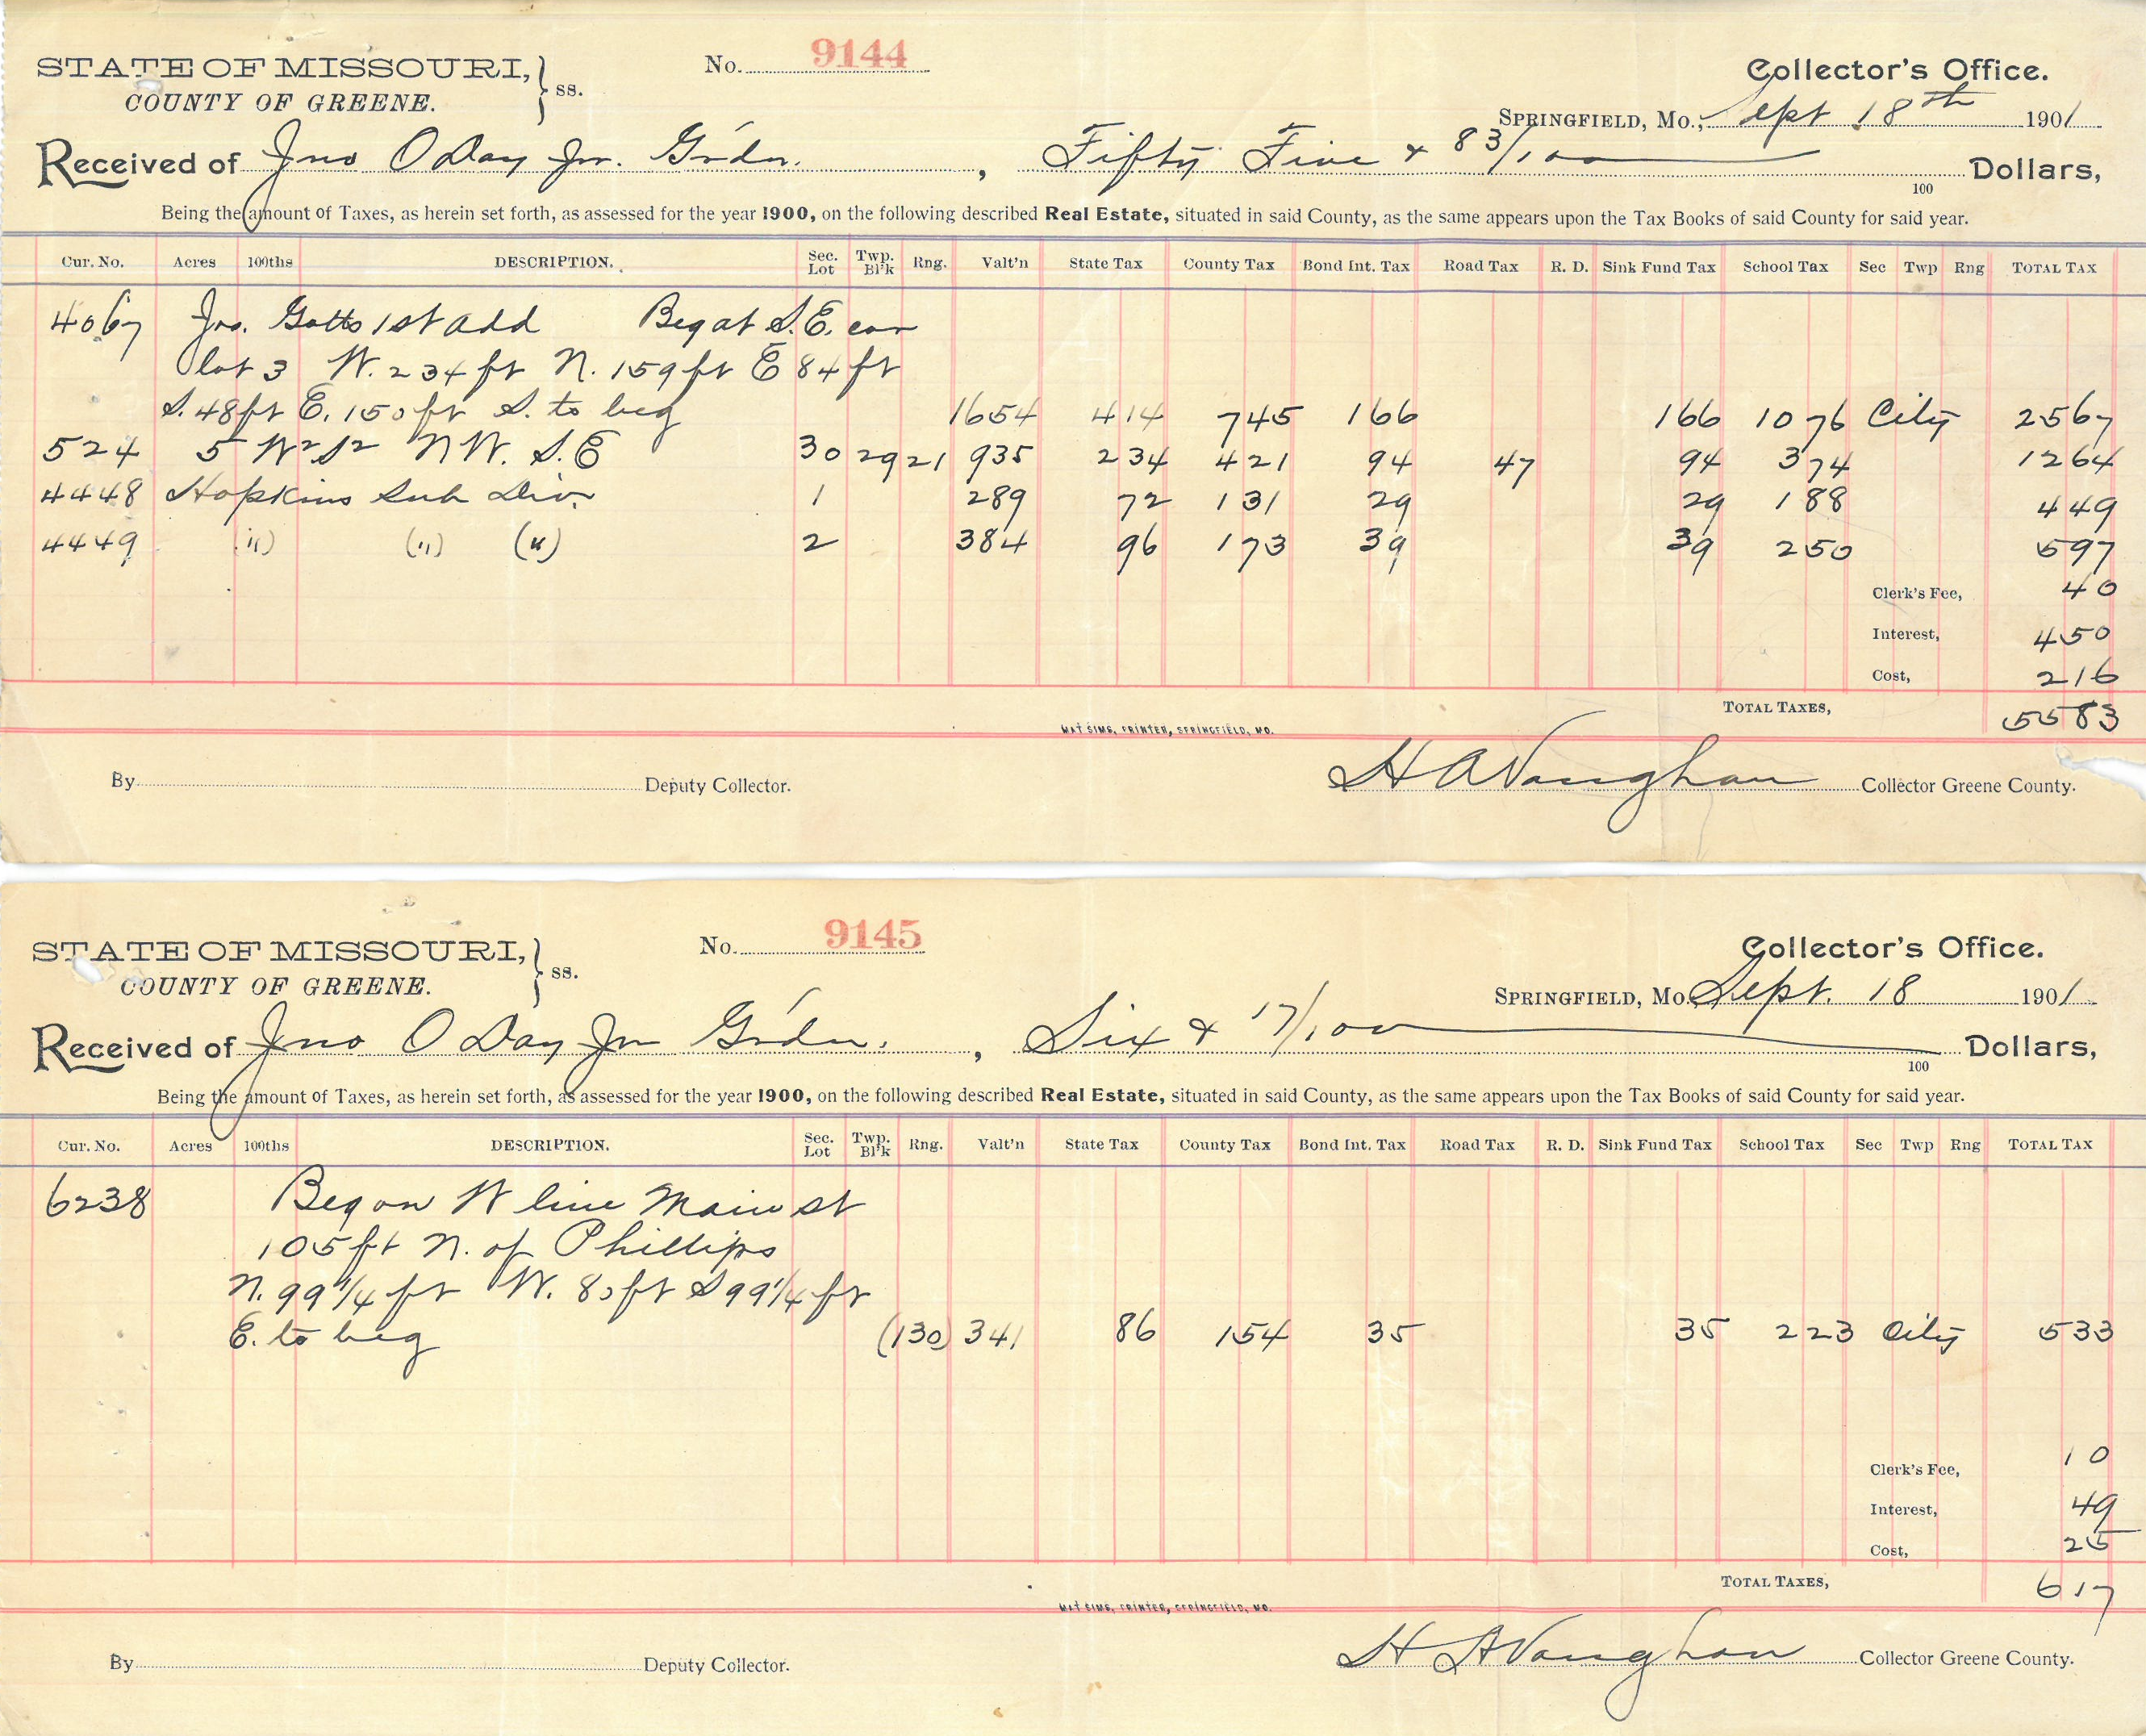 STATE OF MISSOURI, } ss. No. 9144 Collector's Office.
COUNTY OF GREENE. Springfield, Mo., Sept 18th 1901
Received of Jno O Day Jr. Gr'dn. , Fifty Five & 83/100 100 Dollars,
Being the amount of Taxes, as herein set forth, as assessed for the year 1900, on the following described Real Estate, situated in said County, as the same appears upon the Tax Books of said County for said year.
Cur. No. Acres 100ths DESCRIPTION. Sec. Lot Twp. Bl'k Rng. Valt'n State Tax County Tax Bond Int. Tax Road Tax R. D. Sink Fund Tax School Tax Sec Twp Rng TOTAL TAX
4067 Jno. Gotts 1st add Beg at S.E. cor
lot 3 W. 234 ft N. 159 ft E 84 ft
S. 48 ft E. 150 ft S. to beg 1654 414 745 166 166 1076 City 2567
524 5 W2 S2 N W. S. E 30 29 21 935 234 421 94 47 94 374 1264
4448 Hopkins Sub Div. 1 289 72 131 29 29 188 449
4449 (") (") (") 2 384 96 173 39 39 250 597
Clerk's Fee, 40
Interest, 450
Cost, 216
TOTAL TAXES, 5583
MAT SIMS, PRINTER, SPRINGFIELD, MO.
By Deputy Collector. H A Vaughan Collector Greene County.
STATE OF MISSOURI, } ss. No. 9145 Collector's Office.
COUNTY OF GREENE. Springfield, Mo. Sept. 18 1901
Received of Jno O Day Jr Gr'dn. , Six & 17/100 100 Dollars,
Being the amount of Taxes, as herein set forth, as assessed for the year 1900, on the following described Real Estate, situated in said County, as the same appears upon the Tax Books of said County for said year.
Cur. No. Acres 100ths DESCRIPTION. Sec. Lot Twp. Bl'k Rng. Valt'n State Tax County Tax Bond Int. Tax Road Tax R. D. Sink Fund Tax School Tax Sec Twp Rng TOTAL TAX
6238 Beg on W line Main st
105 ft N. of Phillips
N. 99 1/4 ft W. 80 ft S 99 1/4 ft
E. to beg (130) 341 86 154 35 35 223 City 533
Clerk's Fee, 10
Interest, 49
Cost, 25
TOTAL TAXES, 617
MAT SIMS, PRINTER, SPRINGFIELD, MO.
By Deputy Collector. H A Vaughan Collector Greene County.